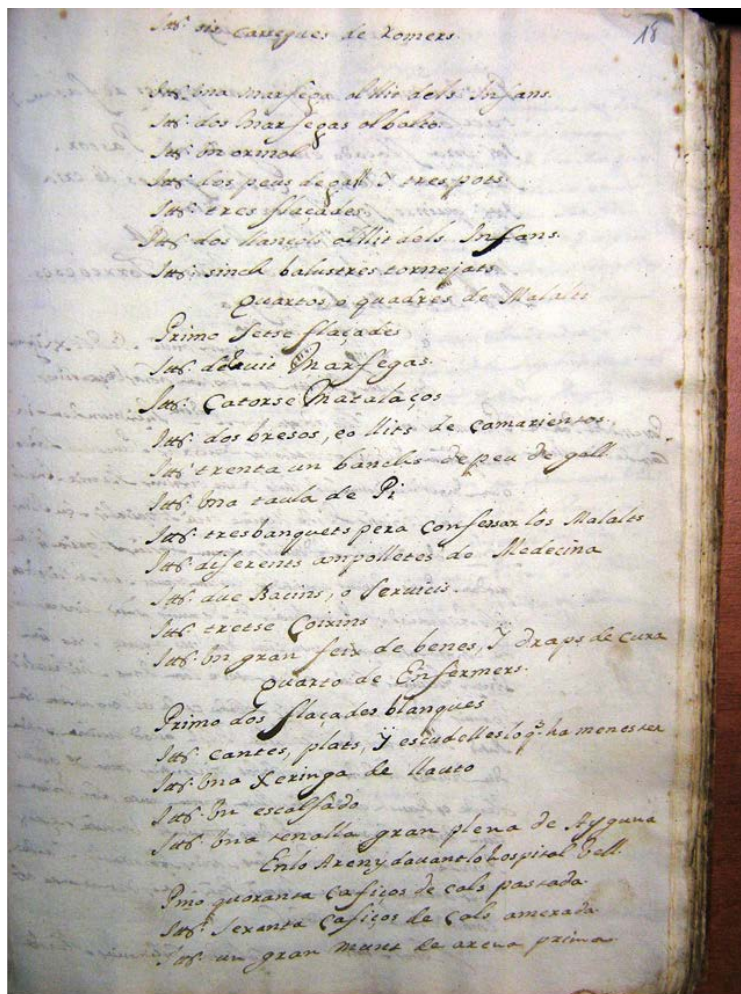 18
Itt. sis carregues de Romers.
Itt. Una marfega al llit dels Infans.
Itt. dos marfegas al balto.
Itt. Un ormol
Itt. dos peus de gall y tres pots
Itt. tres flaçades
Itt. dos llançols al llit dels Infans
Itt. sinch balustres tornejats
Quartos o quadres de Malalts
Primo Setse flaçades
Itt. devuit Marfegas.
Itt. Catorse Matalaços
Itt. dos bresos, eo llits de camarientos.
Itt. trenta un banchs de peu de gall.
Itt. Una taula de Pi
Itt. tres banquets pera Confessar los Malalts
Itt. diferents ampolletes de Medecina
Itt. Bacins, o Servicis.
Itt. tretse Coixins
Itt. Un gran feix de benes, y draps de cura
Quarto de Enfermers.
Primo dos flaçades blanques
Itt. Cantes, plats, y escudelles lo q. ha menester
Itt. Una Xeringa de llauto
Itt. Un escalfado
Itt. Una tenalla gran plena de Ayguna
En lo Areny davant lo hospital Vell.
Pmo quoranta Cafiços de cals pastada.
Itt. Sexanta Cafiços de Cals amerada
Itt. un gran munt de arena prima